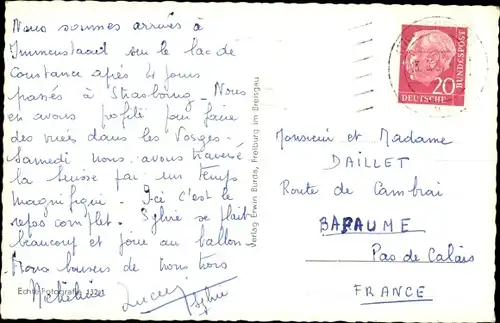 Nous sommes arrivés à
Immenstaad sur le lac de
Constance après 4 jours
passés à Strasbourg - Nous
en avons profité pour faire
des virées dans les Vosges.
Samedi nous avons traversé
la Suisse par un temps
magnifique. Ici c'est le
repos complet. Sylvie se plait
beaucoup et joue au ballon.
Bons baisers de nous trois
Micheline Lucien
Sylvie
Echte Fotografie
Verlag Erwin Burda, Freiburg im Breisgau
20
DEUTSCHE
BUNDESPOST
Monsieur et Madame
DAILLET
Route de Cambrai
BAPAUME
Pas de Calais
FRANCE